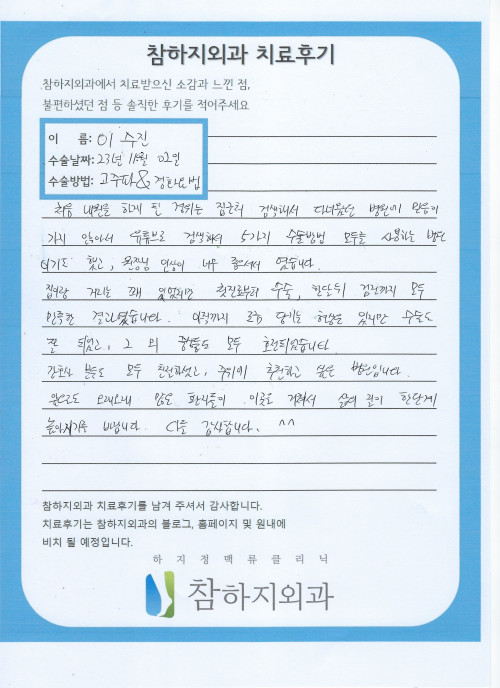 참하지외과 치료후기
참하지외과에서 치료받으신 소감과 느낀 점,
불편하셨던 점 등 솔직한 후기를 적어주세요
이 름: 이 수진
수술날짜: 23년 11월 02일
수술방법: 고주파 & 경화요법
처음 내원을 하게 된 경위는 집근처 검색해서 다녀왔던 병원이 믿음이
가지 않아서 유튜브로 검색해서 5가지 수술방법 모두를 사용하는 병원
이기도 했고, 원장님 인상이 너무 좋으셔서 였습니다.
집이랑 거리는 꽤 있었지만 첫진료부터 수술, 한달뒤 검진까지 모두
만족한 결과였습니다. 아직까지 조금 당기는 현상은 있지만 수술도
잘 되었고, 그 외 증상들도 모두 호전되었습니다.
간호사 분들도 모두 친절하셨고, 주위에 추천하고 싶은 병원입니다.
앞으로도 오래오래 많은 환자들이 이곳을 거쳐서 삶의 질이 한단계
높아지기를 바랍니다. 다들 감사합니다. ^^
참하지외과 치료후기를 남겨 주셔서 감사합니다.
치료후기는 참하지외과의 블로그, 홈페이지 및 원내에
비치 될 예정입니다.
하지정맥류클리닉
참하지외과